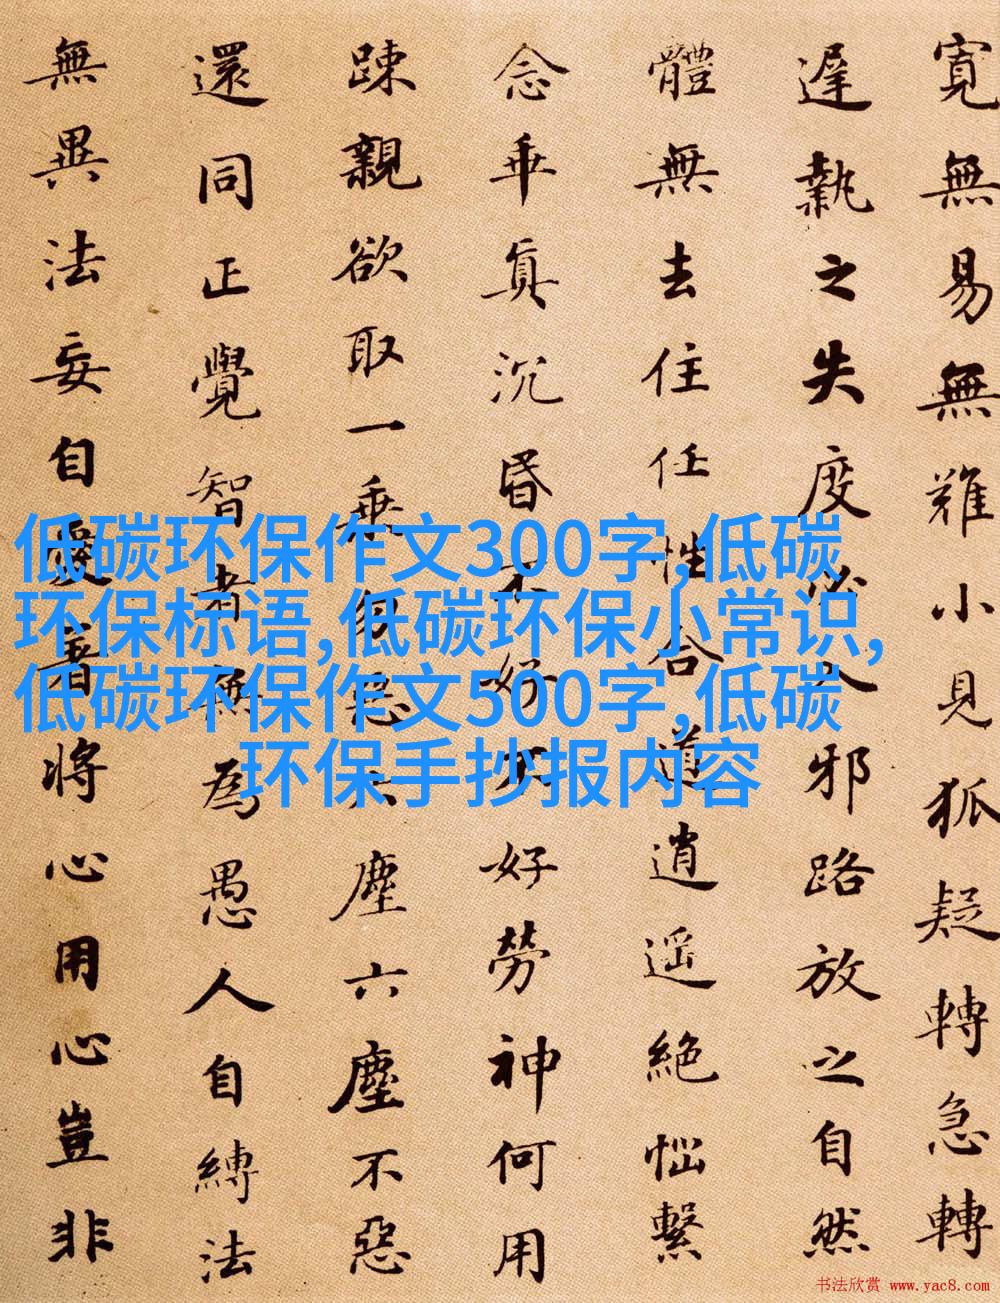 寬無易無難小見狐疑轉急轉
遲執之失度必入邪路放之自然
體無去住任性合道逍遥絕惱繫
念乖真沉昏不好不好勞神何用
踈親欲取一乘勿惡六塵六塵不惡
還同正覺智者無為愚人自縛法
無異法妄自愛著將心用心豈非
低碳环保作文300字,低碳
环保标语,低碳环保小常识,
低碳环保作文500字,低碳
环保手抄报内容
书法欣赏 www.yac8.com